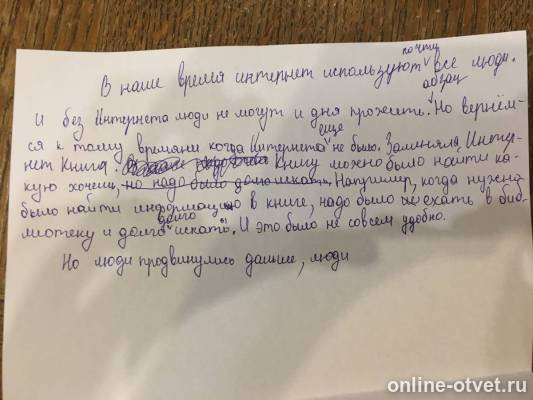 В наше время интернет используют почти все люди.
абзац
И без Интернета люди не могут и дня прожить. Но вернём-
ся к тому времени когда Интернета еще не было. Заменяла Интер-
нет Книга. Книгу можно было найти ка-
кую хочеш, но надо было долго искать. Например, когда нужно
было найти информацию в книге, надо было ехать в биб-
лиотеку и долго долго искать. И это было не совсем удобно.
Но люди продвинулись дальше, люди
online-otvet.ru